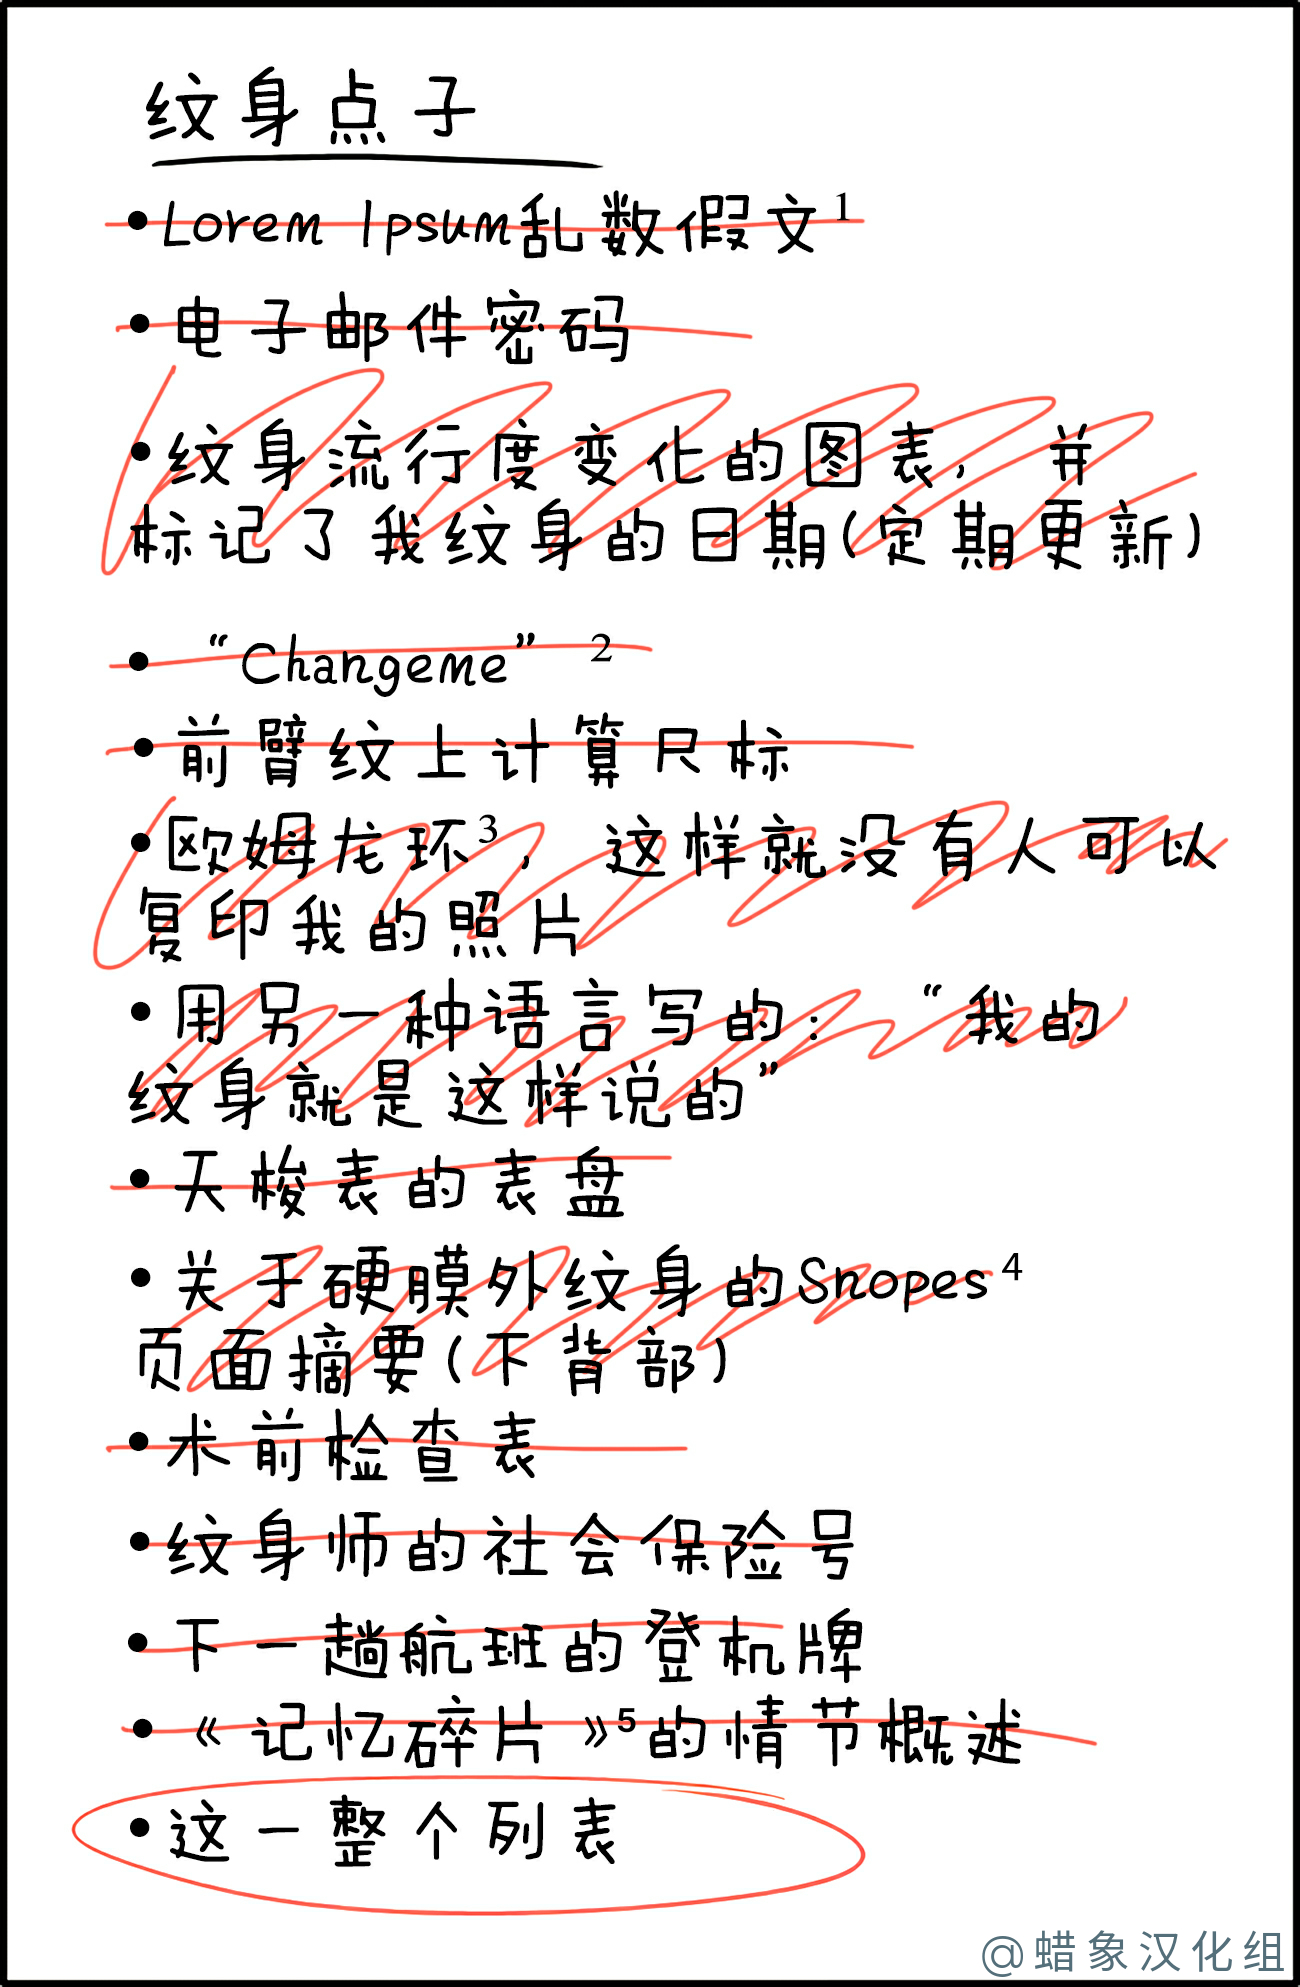 纹身点子
•Lorem Ipsum乱数假文¹
•电子邮件密码
•纹身流行度变化的图表，并
标记了我纹身的日期(定期更新)
•“Changeme” ²
•前臂纹上计算尺标
•欧姆龙环³，这样就没有人可以
复印我的照片
•用另一种语言写的：“我的
纹身就是这样说的”
•天梭表的表盘
•关于硬膜外纹身的Snopes⁴
页面摘要(下背部)
•术前检查表
•纹身师的社会保险号
•下一趟航班的登机牌
•《记忆碎片》⁵的情节概述
•这一整个列表
@蜡象汉化组